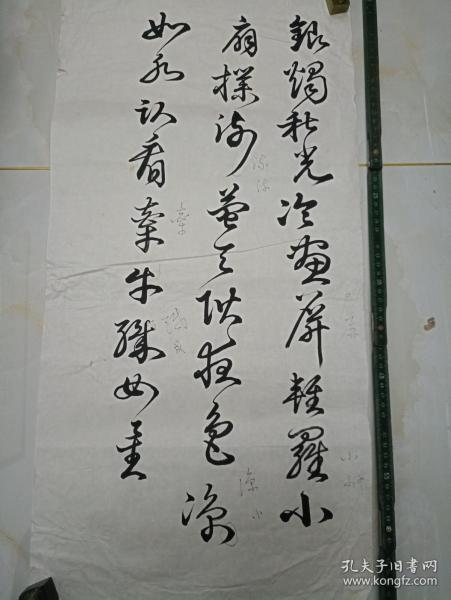 銀燭秋光冷畫屏輕羅小
扇撲流螢天階夜色涼
如水臥看牽牛織女星
孔夫子旧书网
www.kongfz.com